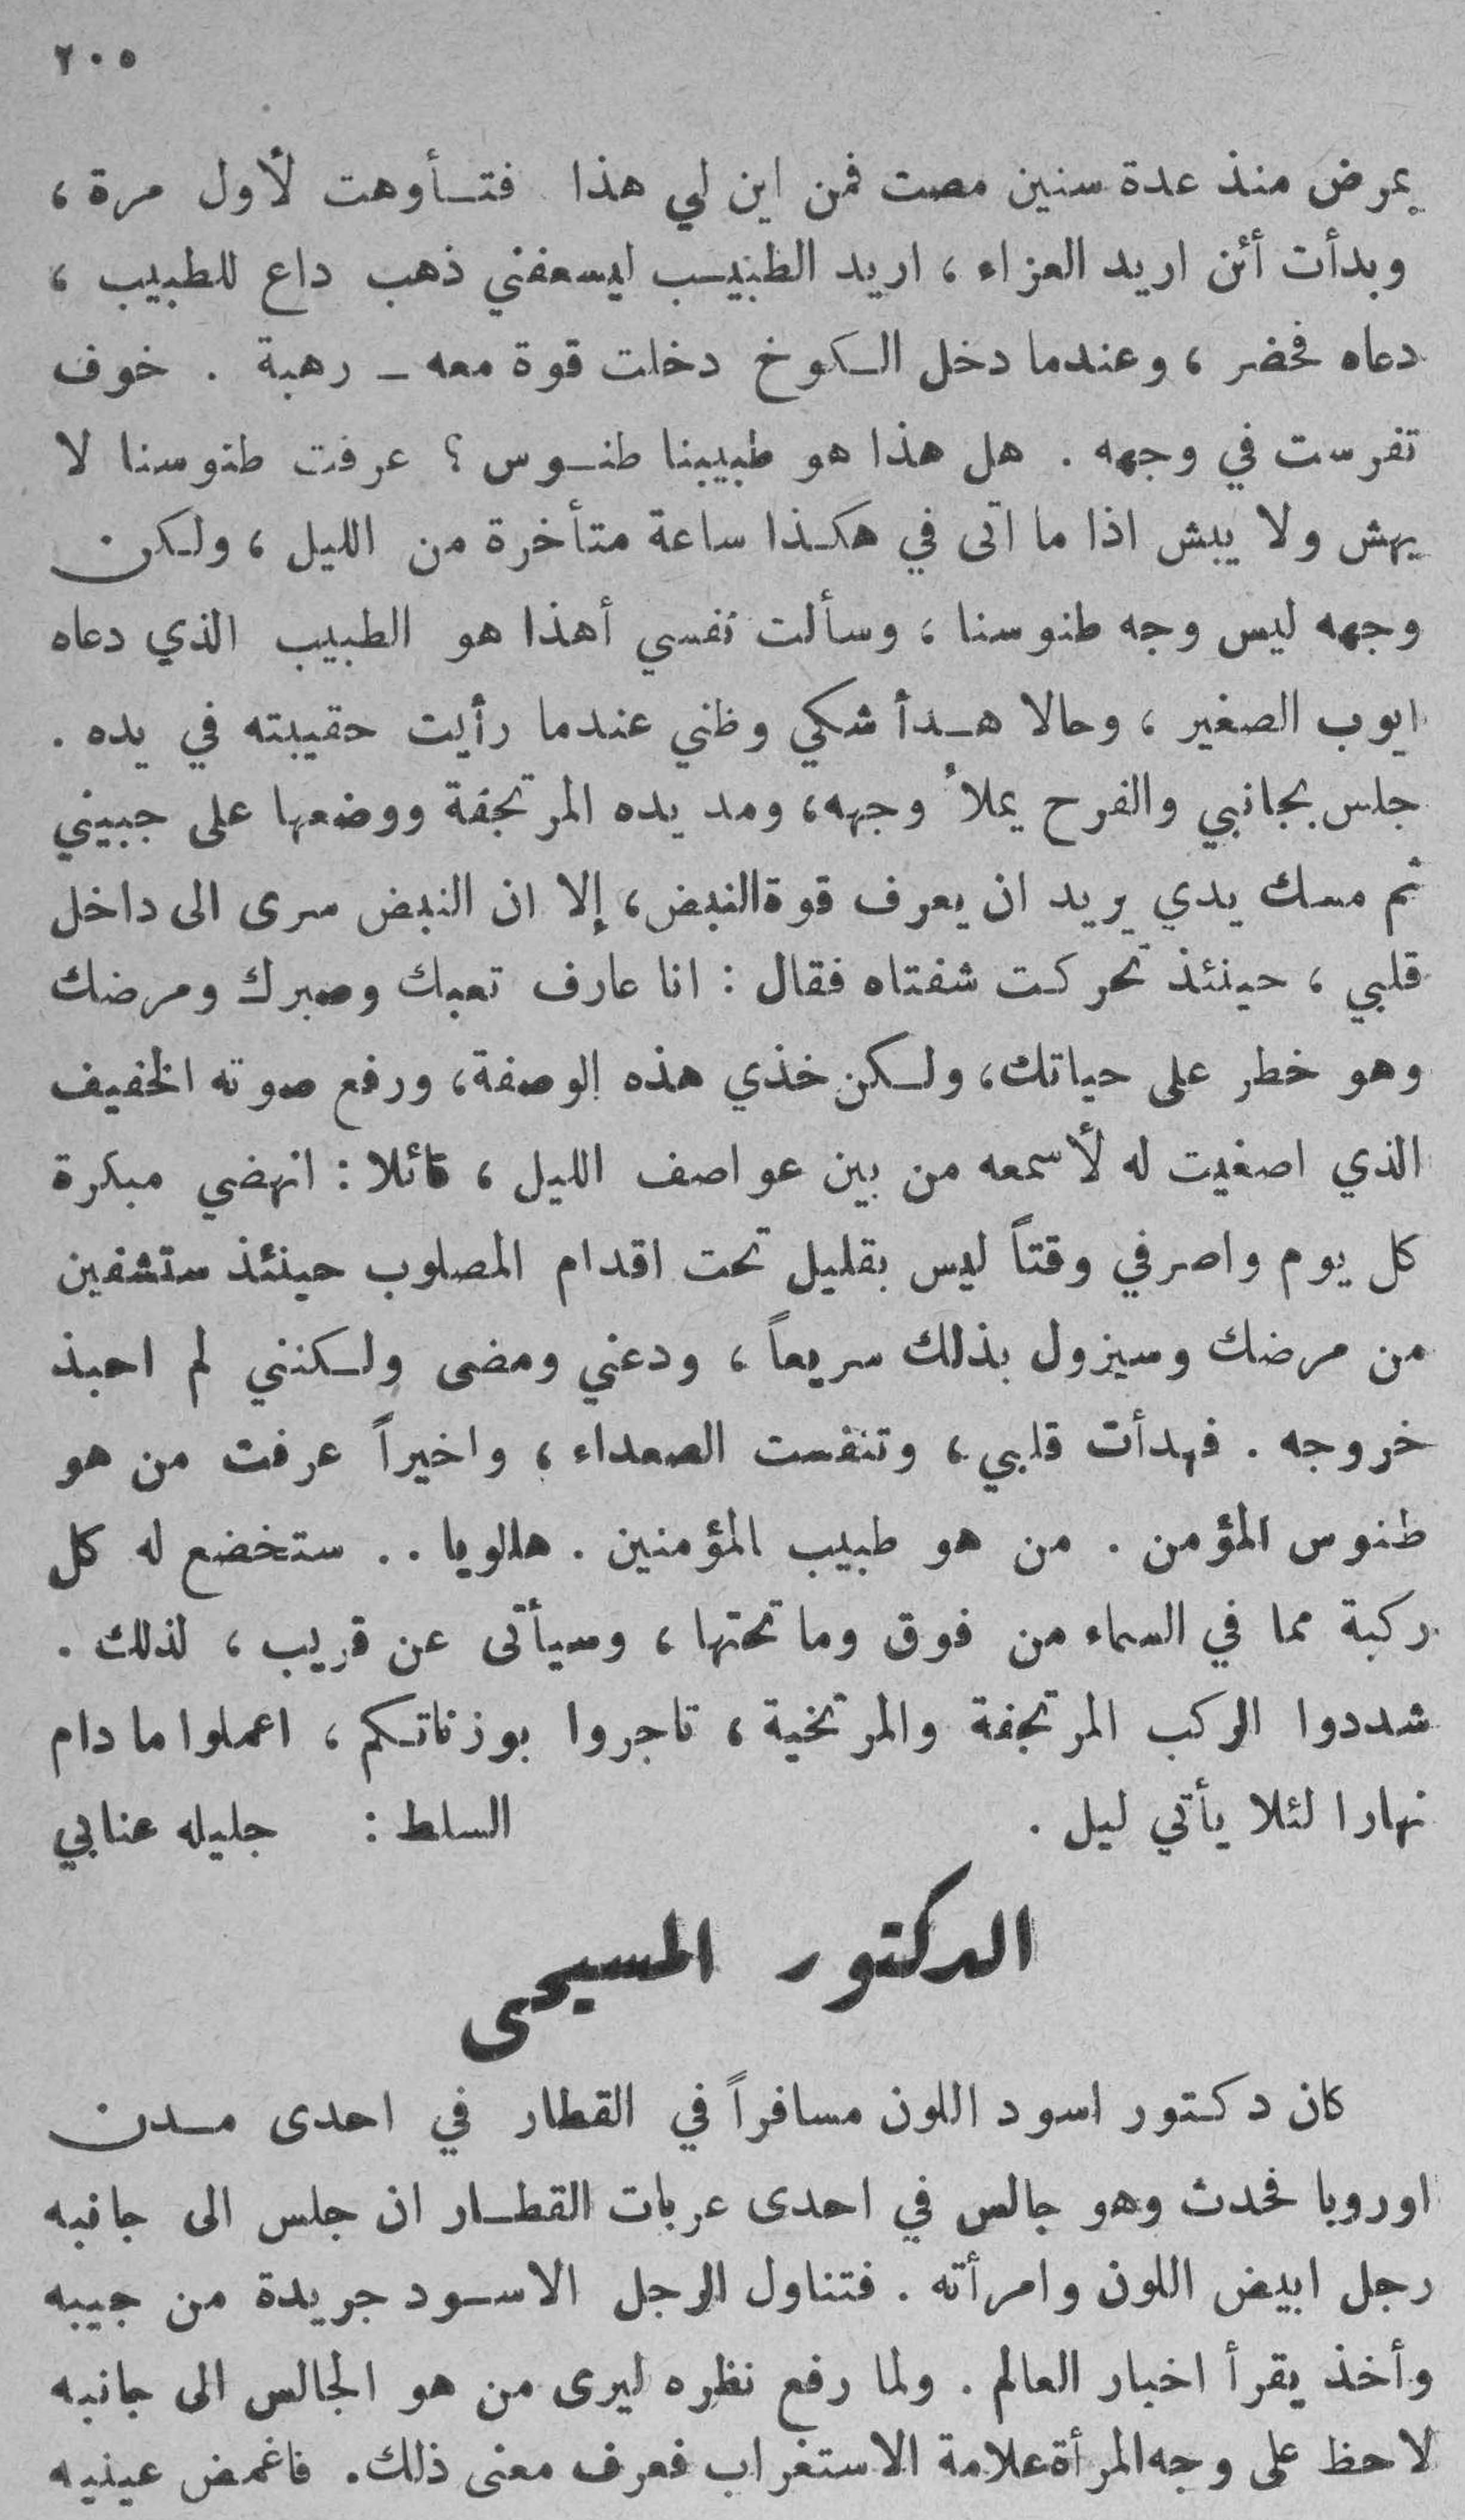 ٢٠٥
بمرض منذ عدة سنين مضت فمن اين لي هذا فتأوهت لأول مرة ،
وبدأت أئن اريد العزاء ، اريد الطبيب ليسعفني ذهب داع للطبيب ،
دعاه فحضر ، وعندما دخل الكوخ دخلت قوة معه ـ رهبة . خوف
تفرست في وجهه . هل هذا هو طبيبنا طنوس ؟ عرفت طنوسنا لا
يهش ولا يبش اذا ما اتى في هكذا ساعة متأخرة من الليل ، ولكن
وجهه ليس وجه طنوسنا ، وسألت نفسي أهذا هو الطبيب الذي دعاه
ايوب الصغير ، وحالا هدأ شكي وظني عندما رأيت حقيبته في يده .
جلس بجانبي والفرح يملأ وجهه ، ومد يده المرتجفة ووضعها على جبيني
ثم مسك يدي يريد ان يعرف قوة النبض ، إلا ان النبض سرى الى داخل
قلبي ، حينئذ تحركت شفتاه فقال : انا عارف تعبك وصبرك ومرضك
وهو خطر على حياتك ، ولكن خذي هذه الوصفة ، ورفع صوته الخفيف
الذي اصغيت له لأسمعه من بين عواصف الليل ، قائلا : انهضي مبكرة
كل يوم واصرفي وقتاً ليس بقليل تحت اقدام المصلوب حينئذ ستشفين
من مرضك وسيزول بذلك سريعاً ، ودعني ومضى ولكنني لم احبذ
خروجه . فهدأت قلبي ، وتنفست الصعداء ، واخيراً عرفت من هو
طنوس المؤمن . من هو طبيب المؤمنين . هللويا . . ستخضع له كل
ركبة مما في السماء من فوق وما تحتها ، وسيأتى عن قريب ، لذلك .
شددوا الركب المرتجفة والمرتخية ، تاجروا بوزناتكم ، اعملوا ما دام
نهارا لئلا يأتي ليل . السلط : جليله عنابي
الدكتور المسيحى
كان دكتور اسود اللون مسافراً في القطار في احدى مدن
اوروبا فحدث وهو جالس في احدى عربات القطار ان جلس الى جانبه
رجل ابيض اللون وامرأته . فتناول الرجل الاسود جريدة من جيبه
وأخذ يقرأ اخبار العالم . ولما رفع نظره ليرى من هو الجالس الى جانبه
لاحظ على وجه المرأة علامة الاستغراب فعرف معنى ذلك . فاغمض عينيه